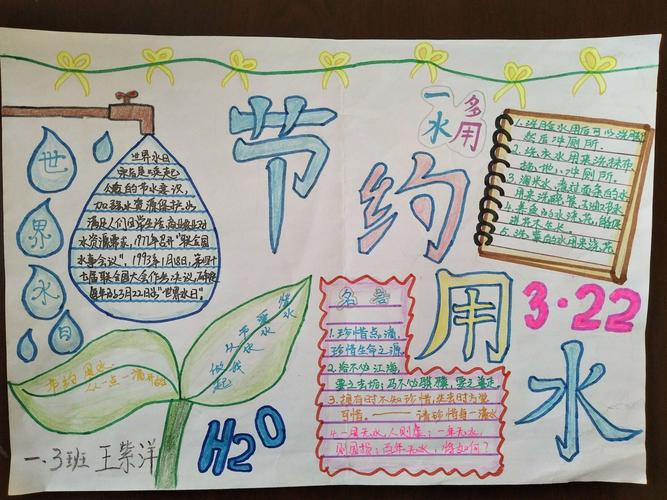 节约用水
一水多用
世界水日
世界水日
宗旨是唤起
公众的节水意识，
加强水资源保护。为
满足人们日常生活、商业和农业对
水资源需求，1977年召开“联合国
水事会议”，1993年1月18日，第四十
七届联合国大会作出决议，确定
每年的3月22日为“世界水日”。
1. 洗脸水用后可以洗脚
然后冲厕所。
2. 洗衣水用来洗拖布、
拖地、冲厕所。
3. 淘米水、煮过面条的水
用来洗碗筷
4. 养鱼的水浇花，能促
进花木生长。
5. 洗菜的水用来浇花
3·22
名言
1. 珍惜点滴，
珍惜生命之源。
3. 拥有时不知珍惜，失去时方觉
可惜。——请珍惜每一滴水
4. 一周无水，人则虚；一年无水，
则国损；百年无水，
节约用水
从一点一滴开始
惜水
爱水
节水
从我
做起
H2O
一．3班 王紫洋